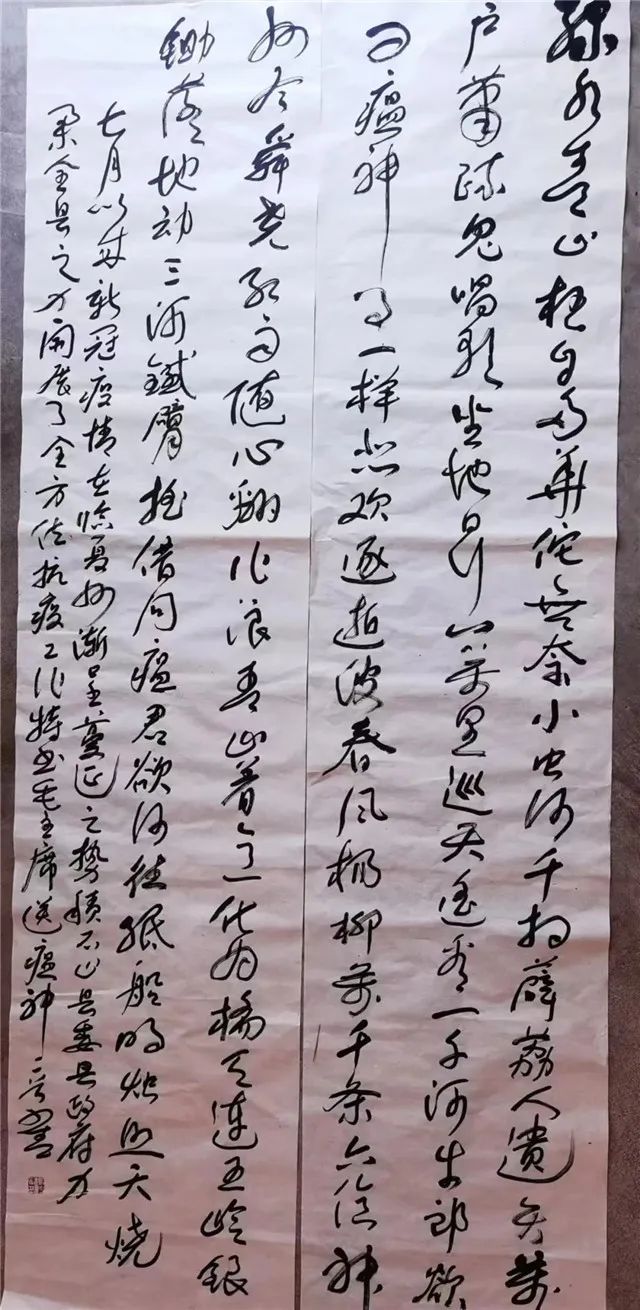 綠水青山枉自多華佗無奈小虫何千村薜荔人遺矢萬
户萧疏鬼唱歌坐地日行八萬里巡天遥看一千河牛郎欲
问瘟神事一样悲欢逐逝波春风杨柳萬千条六亿神
州尽舜尧红雨随心翻作浪青山着意化为橋天连五岭银
锄落地动三河鐵臂摇借问瘟君欲何往纸船明烛照天烧
七月以来新冠疫情在临夏州渐呈蔓延之势積石山县委县政府力
全县之力開展了全方位抗疫工作特书毛主席送瘟神二首